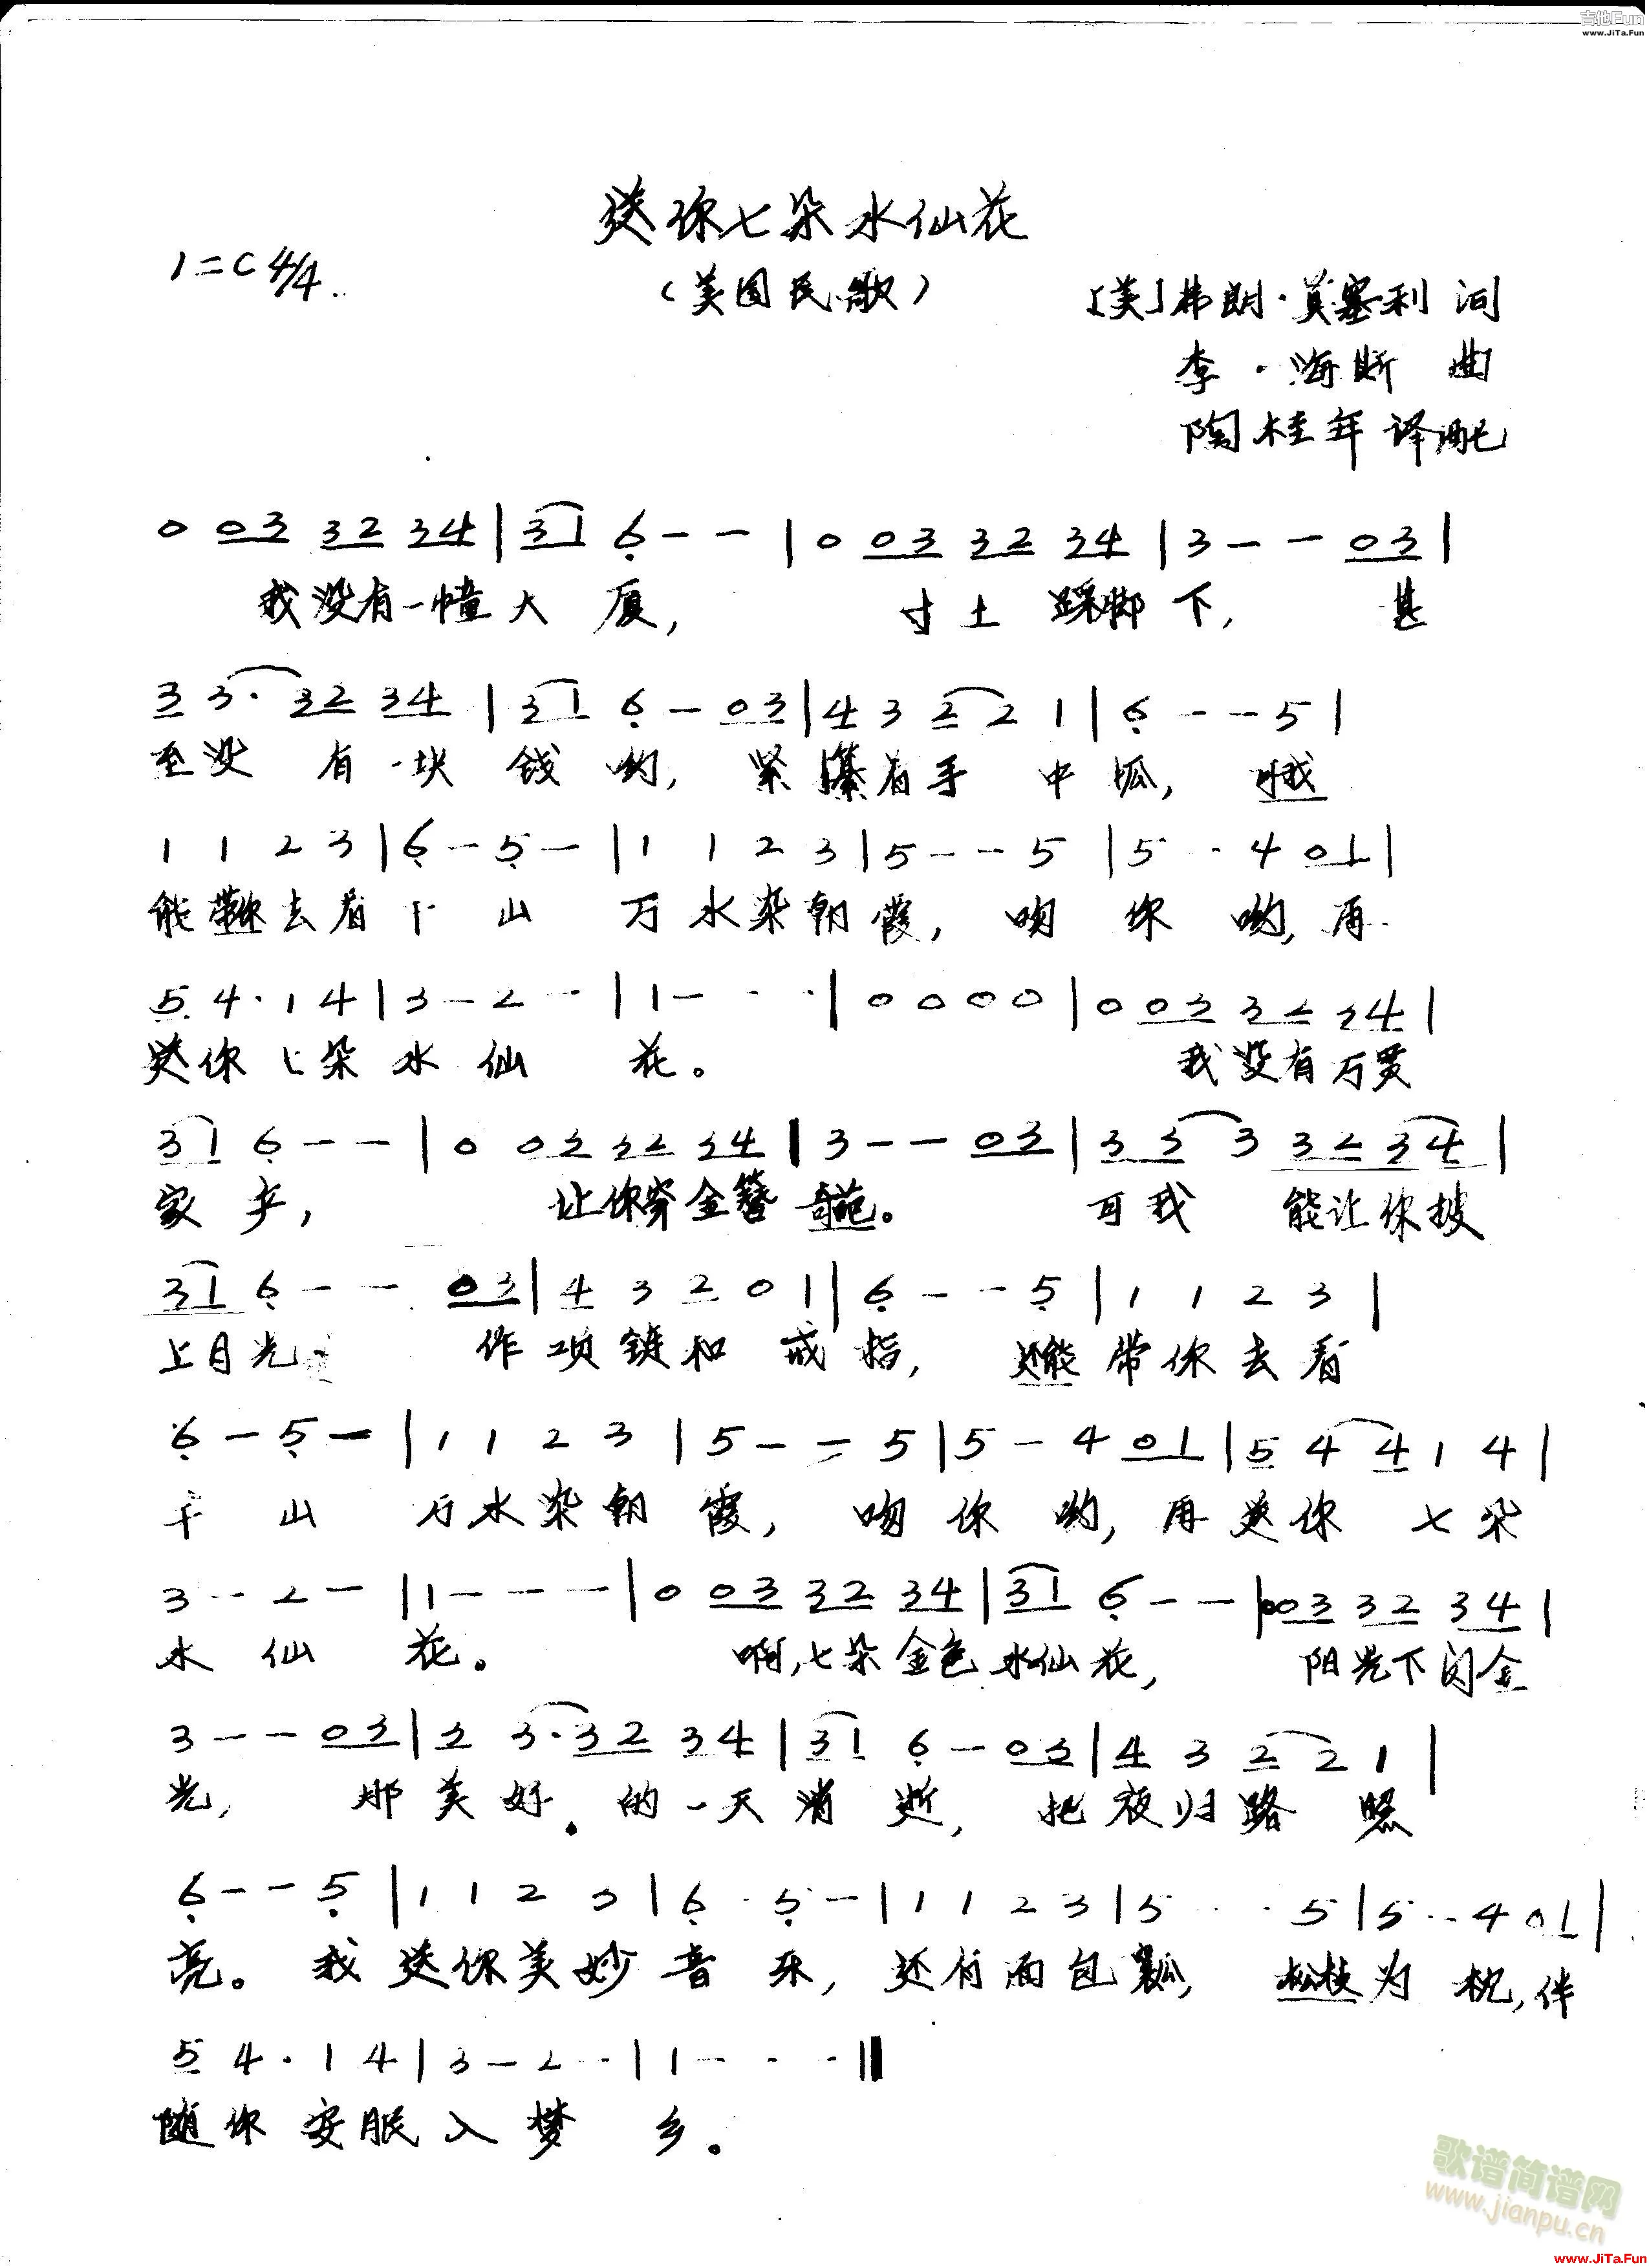 吉他Fun
www.JiTa.Fun
送你七朵水仙花
1=C 4/4
(美国民歌)
[美]弗朗·莫塞利 词
李·海斯 曲
陶桂年 译配
0 03 32 34 | 31 6 - - | 0 03 32 34 | 3 - - 03 |
我没有一幢大厦, 寸土踩脚下, 甚
3 3· 32 34 | 31 6 - 03 | 4 3 2 2 1 | 6 - - 5 |
至没有一块钱哟, 紧攥着手中抓, 我
1 1 2 3 | 6 - 5 - | 1 1 2 3 | 5 - - 5 | 5 - 4 01 |
能带你去看千山万水染朝霞, 吻你哟, 再
5 4· 1 4 | 3 - 2 - | 1 - - - | 0 0 0 0 | 0 03 32 34 |
送你七朵水仙花。 我没有万贯
31 6 - - | 0 03 32 34 | 3 - - 03 | 33 3 32 34 |
家产, 让你穿金簪奇葩。 可我能让你披
31 6 - - 03 | 4 3 2 0 1 | 6 - - 5 | 1 1 2 3 |
上月光 作项链和戒指, 还能带你去看
6 - 5 - | 1 1 2 3 | 5 - - 5 | 5 - 4 01 | 5 4 4 1 4 |
千山万水染朝霞, 吻你哟, 再送你七朵
3 - 2 - | 1 - - - | 0 03 32 34 | 31 6 - - | 003 32 34 |
水仙花。 啊,七朵金色水仙花, 阳光下闪金
3 - - 03 | 3 3· 32 34 | 31 6 - 03 | 4 3 2 2 1 |
光, 那美好的一天消逝, 把夜归路照
6 - - 5 | 1 1 2 3 | 6 - 5 - | 1 1 2 3 | 5 - - 5 | 5 - 4 01 |
亮。我送你美妙音乐, 还有面包瓤, 松枝为枕, 伴
5 4· 1 4 | 3 - 2 - | 1 - - - ||
随你安眠入梦乡。
歌谱简谱网
www.jianpu.cn
www.JiTa.Fun